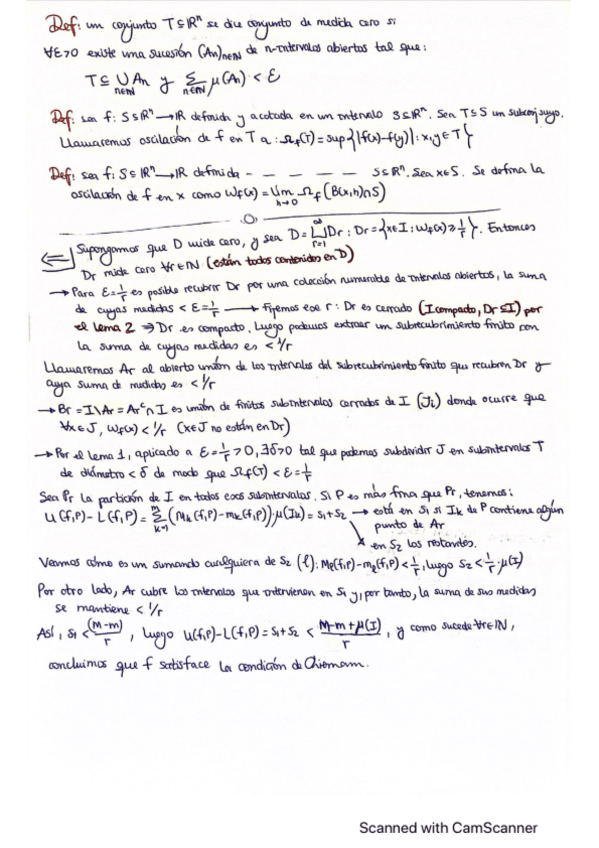 Def: un conjunto T⊆ℝⁿ se dice conjunto de medida cero si
∀ε>0 existe una sucesión (An)n∈ℕ de n-intervalos abiertos tal que:
T⊆ ⋃ An y Σ μ(An) < ε
n∈ℕ n∈ℕ
Def: sea f: S⊆ℝⁿ→ℝ definida y acotada en un intervalo S⊆ℝⁿ. Sea T⊆S un subconjuyo.
Llamaremos oscilación de f en T a: Ωf(T)=sup{|f(x)-f(y)|: x,y∈T}
Def: sea f: S⊆ℝⁿ→ℝ definida - - - - - S⊆ℝⁿ. Sea x∈S. Se define la
oscilación de f en x como Wf(x)=lim h→0 Ωf(B(x,h)∩S)
.O.
⇐ Supongamos que D mide cero, y sea D= ⋃ r=1 ∞ Dr : Dr={x∈I: Wf(x)≥1/r}. Entonces
Dr mide cero ∀r∈ℕ (están todos contenidos en D)
→ Para ε=1/r es posible recubrir Dr por una colección numerable de intervalos abiertos, la suma
de cuyas medidas < ε=1/r → Fijemos ese r: Dr es cerrado (I compacto, Dr⊆I) por
el lema 2 ⇒ Dr es compacto. Luego podemos extraer un subrecubrimiento finito con
la suma de cuyas medidas es < 1/r
Llamaremos Ar al abierto unión de los intervalos del subrecubrimiento finito que recubren Dr y
cuya suma de medidas es < 1/r
→ Br = I\Ar = Arᶜ∩I es unión de finitos subintervalos cerrados de I (Ji) donde ocurre que
∀x∈J, Wf(x)<1/r (x∈J no están en Dr)
→ Por el lema 1, aplicado a ε=1/r>0, ∃δ>0 tal que podemos subdividir J en subintervalos T
de diámetro < δ de modo que Ωf(T) < ε=1/r
Sea Pr la partición de I en todos esos subintervalos. Si P es más fina que Pr, tenemos:
U(f,P)-L(f,P)= Σ k=1 m (Mk(f,P)-mk(f,P))·μ(Ik)=S1+S2 → está en S1 si Ik de P contiene algún
punto de Ar
en S2 los restantes.
Veamos cómo es un sumando cualquiera de S2 (l): Ml(f,P)-ml(f,P)<1/r, luego S2<1/r·μ(I)
Por otro lado, Ar cubre los intervalos que intervienen en S1 y, por tanto, la suma de sus medidas
se mantiene < 1/r
Así, S1<(M-m)/r, luego U(f,P)-L(f,P)=S1+S2 < M-m+μ(I)/r, y como sucede ∀r∈ℕ,
concluimos que f satisface la condición de Riemann.
Scanned with CamScanner